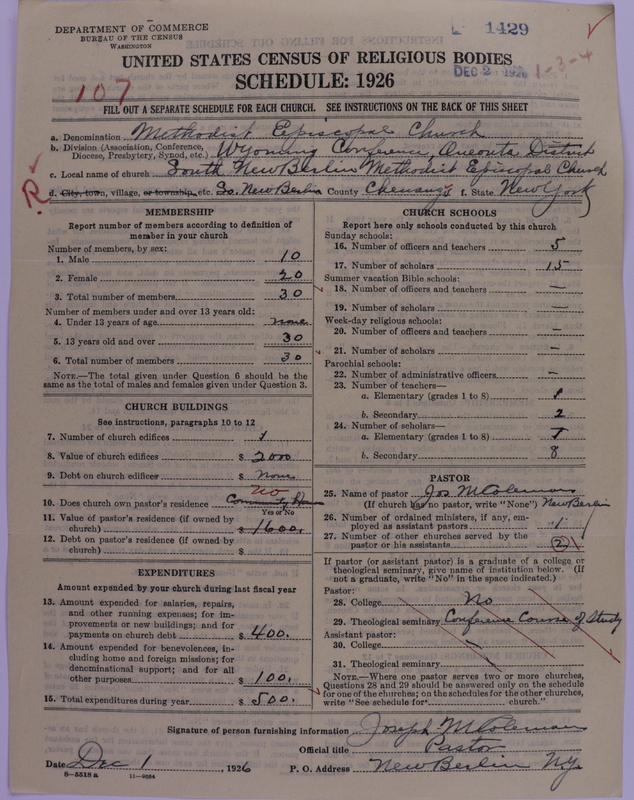 DEPARTMENT OF COMMERCE
BUREAU OF THE CENSUS
WASHINGTON
1429
DEC 2 1926
1-3-4
UNITED STATES CENSUS OF RELIGIOUS BODIES
SCHEDULE: 1926
107
FILL OUT A SEPARATE SCHEDULE FOR EACH CHURCH. SEE INSTRUCTIONS ON THE BACK OF THIS SHEET
a. Denomination Methodist Episcopal Church
b. Division (Association, Conference, Diocese, Presbytery, Synod, etc.) Wyoming Conference, Oneonta District
c. Local name of church South New Berlin Methodist Episcopal Church
R
d. City, town, village, or township, etc. So. New Berlin County Chenango f. State New York
MEMBERSHIP
Report number of members according to definition of
member in your church
Number of members, by sex:
1. Male 10
2. Female 20
3. Total number of members 30
Number of members under and over 13 years old:
4. Under 13 years of age none
5. 13 years old and over 30
6. Total number of members 30
NOTE.—The total given under Question 6 should be
same as the total of males and females given under Question 3.
CHURCH BUILDINGS
See instructions, paragraphs 10 to 12
7. Number of church edifices 1
8. Value of church edifices $ 2000
9. Debt on church edifices $ None
no
10. Does church own pastor's residence Community House
Yes or No
11. Value of pastor's residence (if owned by
church) $ 1600.
12. Debt on pastor's residence (if owned by
church) $
EXPENDITURES
Amount expended by your church during last fiscal year
13. Amount expended for salaries, repairs,
and other running expenses; for im-
provements or new buildings; and for
payments on church debt $ 400.
14. Amount expended for benevolences, in-
cluding home and foreign missions; for
denominational support; and for all
other purposes $ 100.
15. Total expenditures during year $ 500.
CHURCH SCHOOLS
Report here only schools conducted by this church
Sunday schools:
16. Number of officers and teachers 5
17. Number of scholars 15
Summer vacation Bible schools:
18. Number of officers and teachers —
19. Number of scholars —
Week-day religious schools:
20. Number of officers and teachers —
21. Number of scholars —
Parochial schools:
22. Number of administrative officers —
23. Number of teachers—
a. Elementary (grades 1 to 8)
b. Secondary 2
24. Number of scholars—
a. Elementary (grades 1 to 8) 7
b. Secondary 8
PASTOR
25. Name of pastor Jos M Coleman
(If church has no pastor, write "None") New Berlin
26. Number of ordained ministers, if any, em-
ployed as assistant pastors 1
27. Number of other churches served by the
pastor or his assistants 2
If pastor (or assistant pastor) is a graduate of a college or
theological seminary, give name of institution below. (If
not a graduate, write "No" in the space indicated.)
Pastor:
28. College No
29. Theological seminary Conference Course of Study
Assistant pastor:
30. College —
31. Theological seminary
NOTE.—Where one pastor serves two or more churches,
Questions 28 and 29 should be answered only on the schedule
for one of the churches; on the schedules for the other churches,
write "See schedule for church."
Signature of person furnishing information Joseph M Coleman
Official title Pastor
Date Dec 1, 1926 P. O. Address New Berlin N.Y.
8-5518 a 11-9684